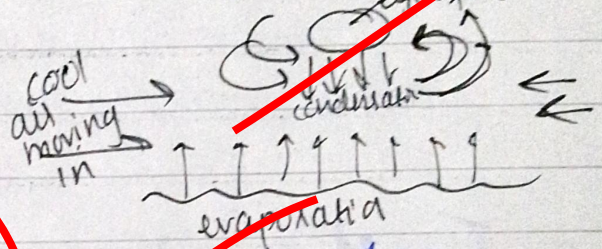 cool
air
moving
in
condensation
evaporatia